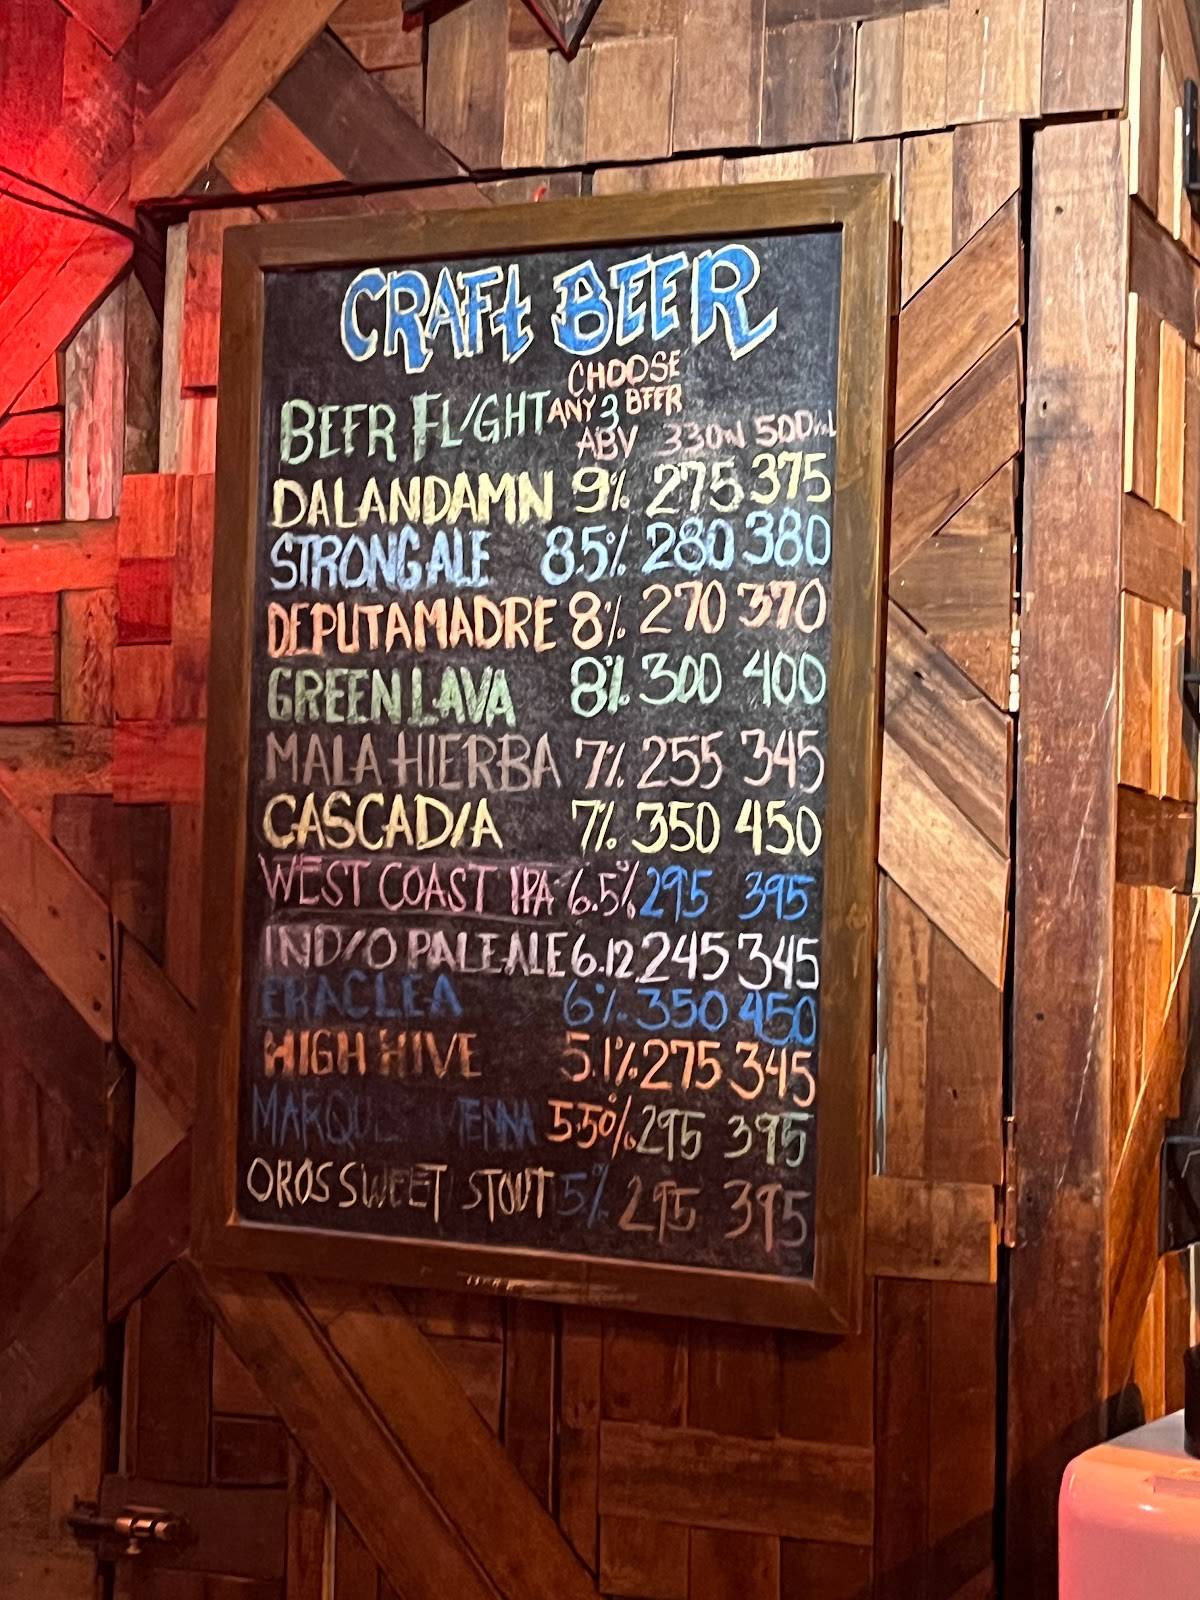 CRAFt BEER
BEER FLIGHT CHOOSE ANY 3 BEER
ABV 330ml 500ml
DALANDAMN 9% 275 375
STRONG ALE 8.5% 280 380
DEPUTAMADRE 8% 270 370
GREEN LAVA 8% 300 400
MALA HIERBA 7% 255 345
CASCADIA 7% 350 450
WEST COAST IPA 6.5% 295 395
INDIO PALE ALE 6.12 245 345
ERACLEA 6% 350 450
HIGH HIVE 5.1% 275 345
5.50% 295 395
OROS SWEET STOUT 5% 295 395